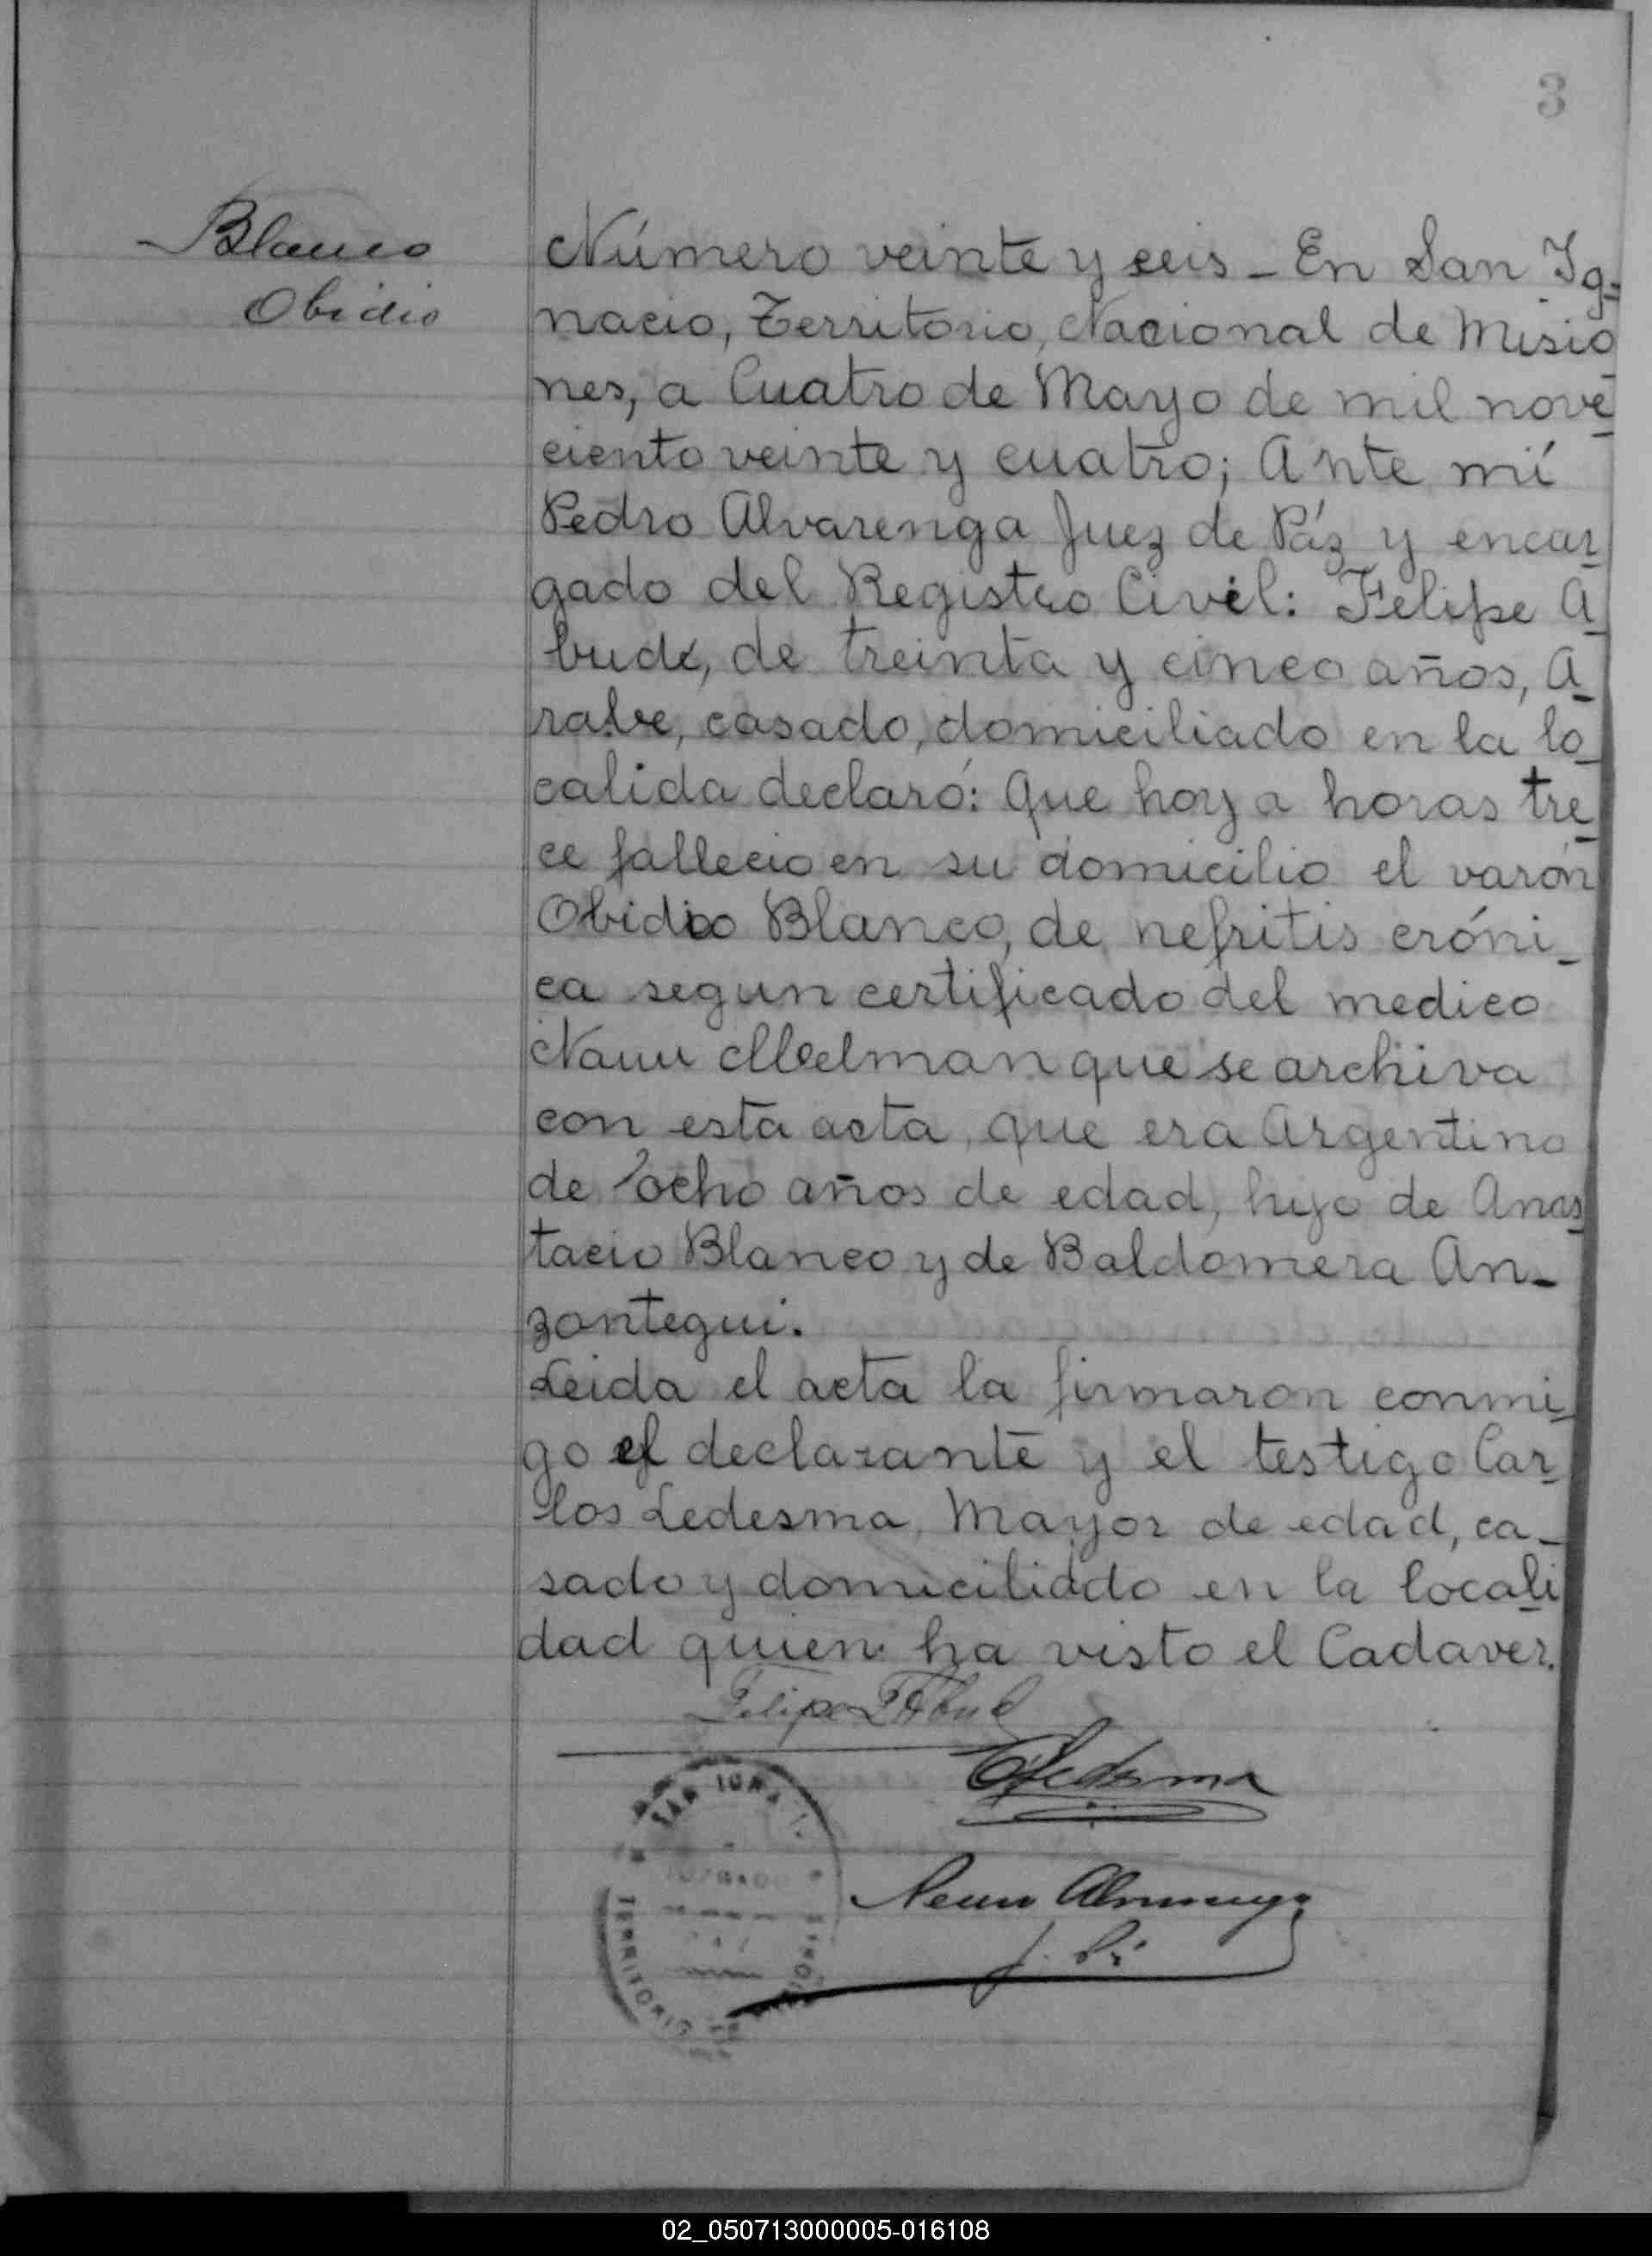 3
Blanco
Obidio
Número veinte y seis - En San Ig-
nacio, Territorio, Nacional de Misio
nes, a Cuatro de Mayo de mil nove
ciento veinte y cuatro; Ante mí
Pedro Alvarenga Juez de Páz y encar
gado del Registro Civil: Felipe A
bud, de treinta y cinco años, A
rabe, casado, domiciliado en la lo
calida declaró: Que hoy a horas tre
ce fallecio en su domicilio el varón
Obidio Blanco, de nefritis cróni-
ca segun certificado del medico
Naun Melman que se archiva
con esta acta, que era Argentino
de ocho años de edad, hijo de Anas
tacio Blanco y de Baldomera An-
zontegui.
Leida el acta la firmaron conmi
go el declarante y el testigo Car
los Ledesma, Mayor de edad, ca-
sado y domiciliado en la locali
dad quien ha visto el Cadaver.
Felipe Abud
CLedesma
SAN IGNA
TERRITORIO
Alvarenga
02_050713000005-016108